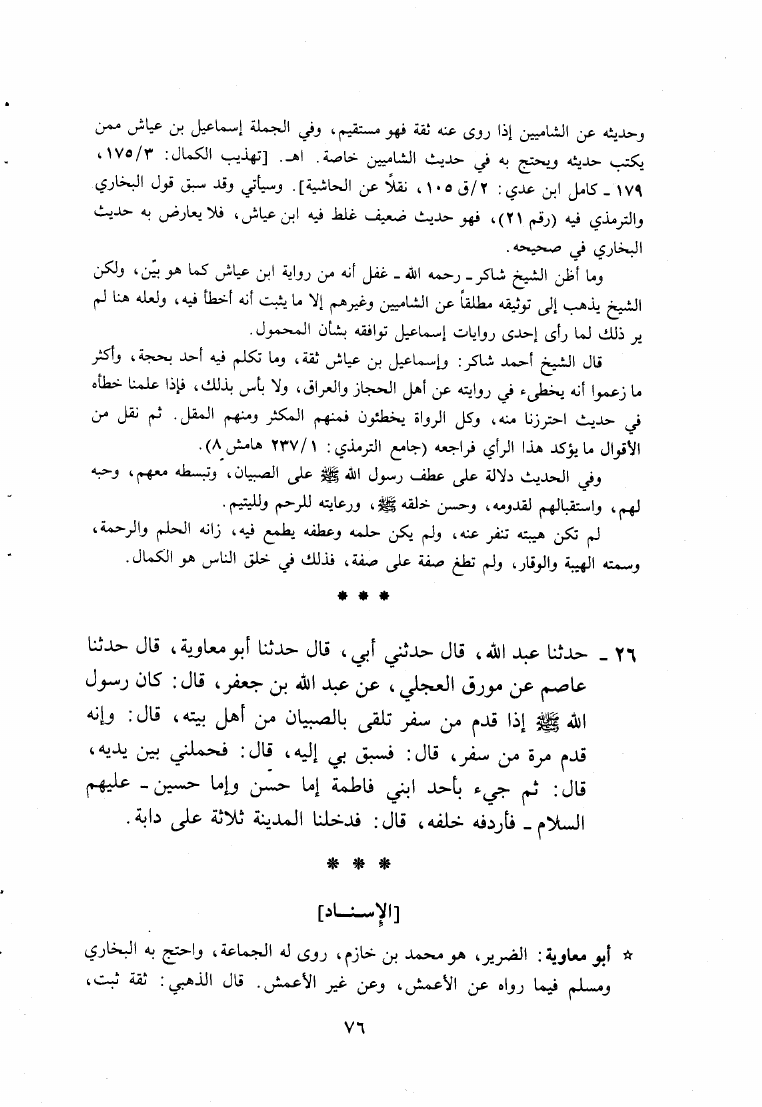 وحديثه عن الشاميين إذا روى عنه ثقة فهو مستقيم، وفي الجملة إسماعيل بن عياش ممن
يكتب حديثه ويحتج به في حديث الشاميين خاصة. اهـ. [تهذيب الكمال: ١٧٥/٣،
١٧٩ - كامل ابن عدي: ٢/ق ١٠٥، نقلاً عن الحاشية]. وسيأتي وقد سبق قول البخاري
والترمذي فيه (رقم ٢١)، فهو حديث ضعيف غلط فيه ابن عياش، فلا يعارض به حديث
البخاري في صحيحه.
وما أظن الشيخ شاكر - رحمه الله - غفل أنه من رواية ابن عياش كما هو بيّن، ولكن
الشيخ يذهب إلى توثيقه مطلقاً عن الشاميين وغيرهم إلا ما يثبت أنه أخطأ فيه، ولعله هنا لم
ير ذلك لما رأى إحدى روايات إسماعيل توافقه بشأن المحمول.
قال الشيخ أحمد شاكر: وإسماعيل بن عياش ثقة، وما تكلم فيه أحد بحجة، وأكثر
ما زعموا أنه يخطىء في روايته عن أهل الحجاز والعراق، ولا بأس بذلك، فإذا علمنا خطأه
في حديث احترزنا منه، وكل الرواة يخطئون فمنهم المكثر ومنهم المقل. ثم نقل من
الأقوال ما يؤكد هذا الرأي فراجعه (جامع الترمذي: ٢٣٧/١ هامش ٨).
وفي الحديث دلالة على عطف رسول الله ﷺ على الصبيان، وتبسطه معهم، وحبه
لهم، واستقبالهم لقدومه، وحسن خلقه ﷺ، ورعايته للرحم ولليتيم.
لم تكن هيبته تنفر عنه، ولم يكن حلمه وعطفه يطمع فيه، زانه الحلم والرحمة،
وسمته الهيبة والوقار، ولم تطغ صفة على صفة، فذلك في خلق الناس هو الكمال.
* * *
٢٦ - حدثنا عبد الله، قال حدثني أبي، قال حدثنا أبو معاوية، قال حدثنا
عاصم عن مورق العجلي، عن عبد الله بن جعفر، قال: كان رسول
الله ﷺ إذا قدم من سفر تلقى بالصبيان من أهل بيته، قال: وإنه
قدم مرة من سفر، قال: فسبق بي إليه، قال: فحملني بين يديه،
قال: ثم جيء بأحد ابني فاطمة إما حسن وإما حسين - عليهم
السلام - فأردفه خلفه، قال: فدخلنا المدينة ثلاثة على دابة.
* * *
[الإسناد]
☆ أبو معاوية: الضرير، هو محمد بن خازم، روى له الجماعة، واحتج به البخاري
ومسلم فيما رواه عن الأعمش، وعن غير الأعمش. قال الذهبي: ثقة ثبت،
٧٦